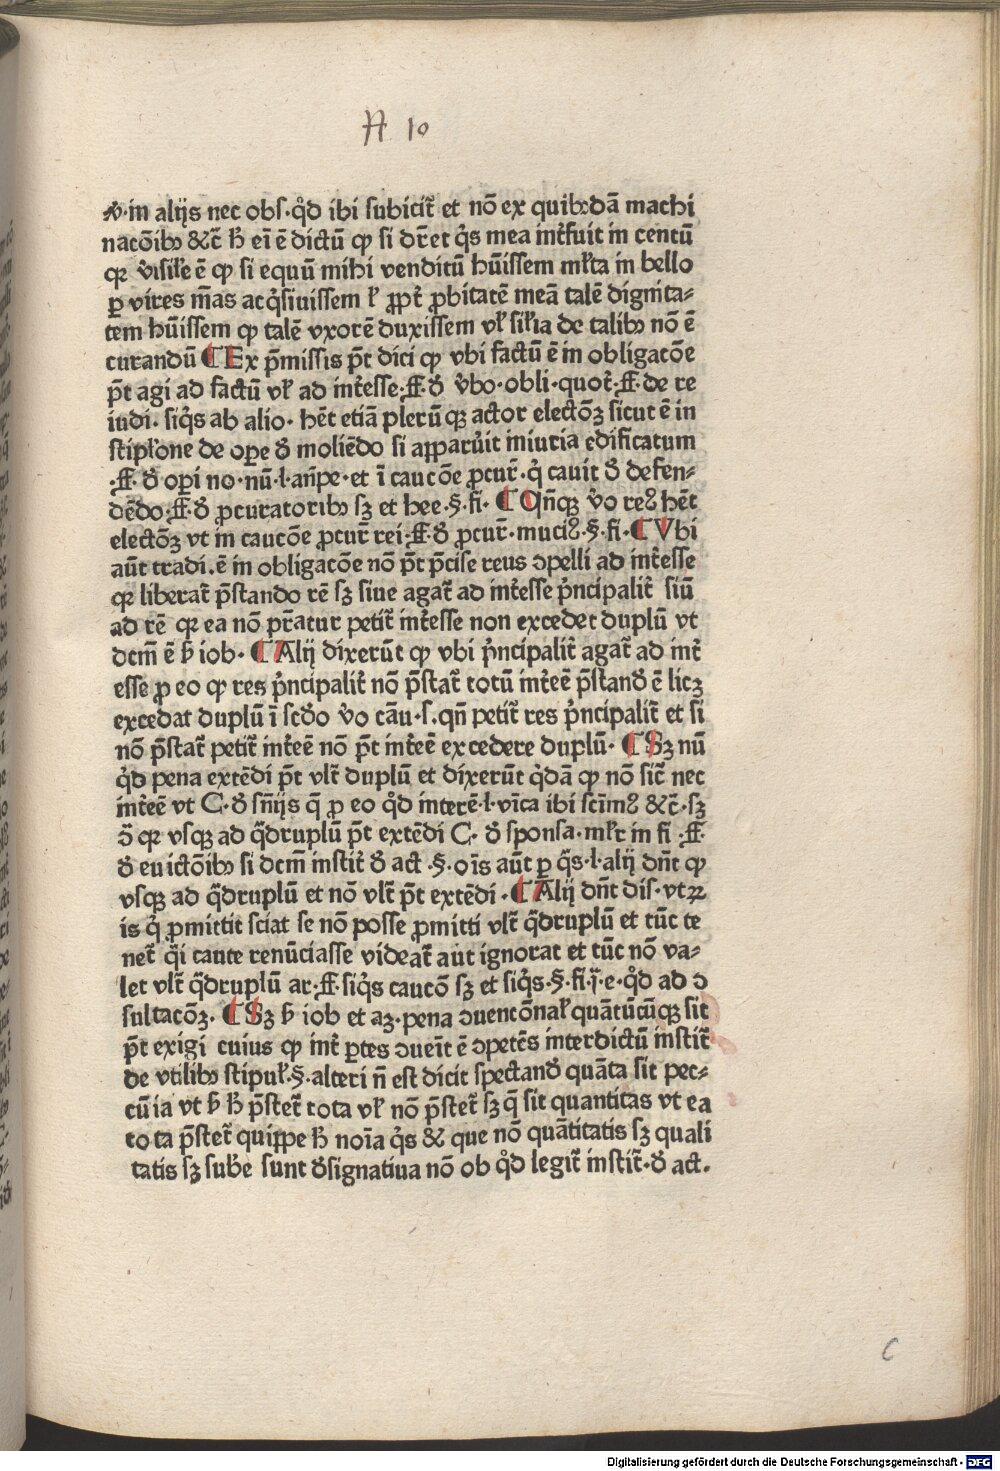 A 10
in alijs nec obs·qd̓ ibi subicit̄ et nō ex quibꝰdā machi
nacōibꝰ &c̄ h̓ eī ē dictū ꝙ si dr̄et q̓s mea int̓fuit in centū
qꝛ v̓isil̓e ē ꝙ si equū mihi venditū hūissem ml̓ta in bello
ꝑ vires m̄as acq̓siuissem l̓ ꝓpt̓ ꝓbitatē meā talē dignita⸗
tem hūissem ꝙ talē vxorē duxissem vl̓ sil̓ia de talibꝰ nō ē
curandū ¶ Ex p̄missis p̄t dici ꝙ vbi factū ē in obligacōe
p̄t agi ad factū vl̓ ad int̓esse·ff·d̓ v̓bo·obli·quot̓·ff·de re
iudi·siq̓s ab alio·hēt etiā plerūqꝫ actor electōꝫ sicut ē in
stipl̓one de oꝑe d̓ moliēdo si apparūit iniuria edificatum
·ff·d̓ oꝑi no·nū·l·an̄pe·et ī caucōe ꝓcur̄·q̓ cauit d̓ defen⸗
dēdo·ff·d̓ ꝓcuratoribꝰ sꝫ et hee·§·fi·¶ Qn̄qꝫ v̓o reꝰ hēt
electōꝫ vt in caucōe ꝓcur̄ rei·ff·d̓ ꝓcur̄·muciꝰ·§·fi·¶ Vbi
aūt tradi·ē in obligacōe nō p̄t p̄cise reus ↄpelli ad int̓esse
qꝛ liberat̄ p̄stando rē sꝫ siue agat̄ ad int̓esse p̓ncipalit̓ siū
ad rē qꝛ ea nō pr̄atur petit̄ int̓esse non excedet duplū vt
dcm̄ ē h̓ iob·¶ Alij dixerūt ꝙ vbi p̓ncipalit̓ agat̄ ad int̓
esse ꝓ eo ꝙ res p̓ncipalit̓ nō p̄stat̄ totū int̓eē p̄stand̓ ē licꝫ
excedat duplū ī scd̓o v̓o cāu·s·qn̄ petit̄ res p̓ncipalit̓ et si
nō p̄stat̄ petit̄ int̓eē nō p̄t int̓eē excedere duplū·¶ Sꝫ nū
qd̓ pena extēdi p̄t vlt̄ duplū et dixerūt q̓dā ꝙ nō sic̄ nec
int̓eē vt C·d̓ sn̄ijs q̄ ꝓ eo qd̓ interē·l·vīca ibi scīmꝰ &c̄·sꝫ
ↄ̄ qꝛ vsqꝫ ad q̄druplū p̄t extēdi C·d̓ sponsa·ml̓r in fi·ff·
d̓ euictōibꝰ si dcm̄ instit̓ d̓ act·§·oīs aūt ꝑ q̄s·l·alij dn̄t ꝙ
vsqꝫ ad q̄druplū et nō vlt̄ p̄t extēdi·¶ Alij dn̄t dis·vtꝝ
is q̓ ꝓmittit sciat se nō posse ꝓmitti vlt̄ q̄druplū et tūc te
net̄ q̄i caute renūciasse videat̄ aut ignorat et tūc nō va⸗
let vlt̄ q̄druplū ar·ff·siq̓s caucō sꝫ et siq̓s·§·fi·j̄·e·qd̓ ad ↄ
sultacōꝫ·¶ Sꝫ h̓ iob et aꝫ·pena ↄuencōnal̓ quātūcūqꝫ sit
p̄t exigi cuius ꝙ int̓ ꝑtes ↄueīt ē ↄpetēs interdictū instit̓
de vtilibꝰ stipul̓·§·alteri n̄ est dicit spectand̓ quāta sit pec⸗
cūia vt h̓ h̓ p̄stet̄ tota vl̓ nō p̄stet̄ sꝫ q̄ sit quantitas vt ea
tota p̄stet̄ quippe h̓ noīa q̓s & que nō quātitatis sꝫ quali
tatis sꝫ sub̓e sunt d̓signatiua nō ob qd̓ legit̄ instit̓·d̓ act·
C
Digitalisierung gefördert durch die Deutsche Forschungsgemeinschaft - DFG